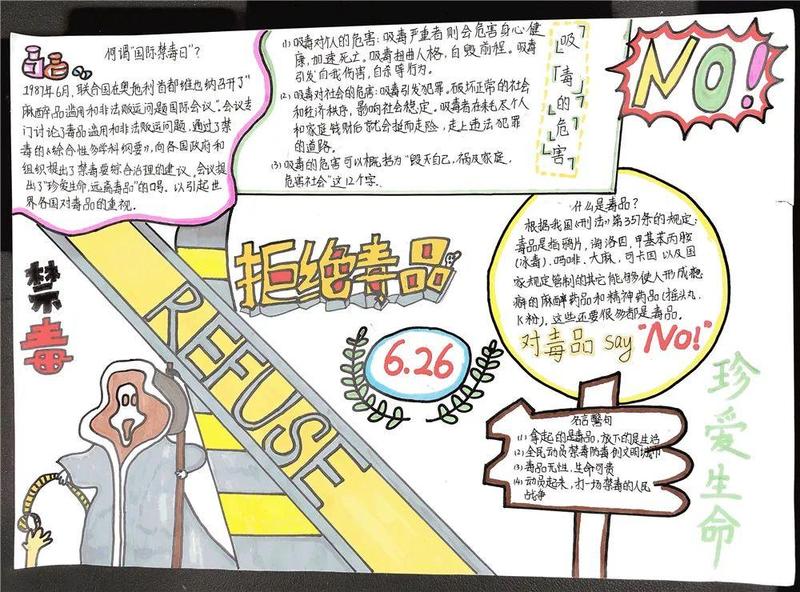 何谓"国际禁毒日"？
1987年6月，联合国在奥地利首都维也纳召开了"
麻醉品滥用和非法贩运问题国际会议"。会议专
门讨论了毒品滥用和非法贩运问题，通过了禁
毒的《综合性多学科纲要》，向各国政府和
组织提出了禁毒要综合治理的建议。会议提
出了"珍爱生命，远离毒品"的口号，以引起世
界各国对毒品的重视。
(1) 吸毒对个人的危害：吸毒严重者则会危害身心健
康，加速死亡。吸毒扭曲人格，自毁前程。吸毒
引发自我伤害，自杀等行为。
(2) 吸毒对社会的危害：吸毒引发犯罪，破坏正常的社会
和经济秩序，影响社会稳定。吸毒者在耗尽个人
和家庭钱财后就会挺而走险，走上违法犯罪
的道路。
(3) 吸毒的危害可以概括为"毁灭自己，祸及家庭，
危害社会"这12个字。
吸毒的危害
NO!
什么是毒品？
根据我国《刑法》第357条的规定：
毒品是指鸦片，海洛因，甲基苯丙胺
(冰毒)，吗啡，大麻，可卡因以及国
家规定管制的其它能够使人形成瘾
癖的麻醉药品和精神药品(摇头丸，
K粉)，这些还要很多都是毒品。
对毒品say"No!"
禁毒
拒绝毒品
REFUSE
6.26
名言警句
(1) 拿起的是毒品，放下的是生活
(2) 全民动员禁毒防毒创文明城市
(3) 毒品无性，生命可贵
(4) 动员起来，打一场禁毒的人民
战争
珍爱生命